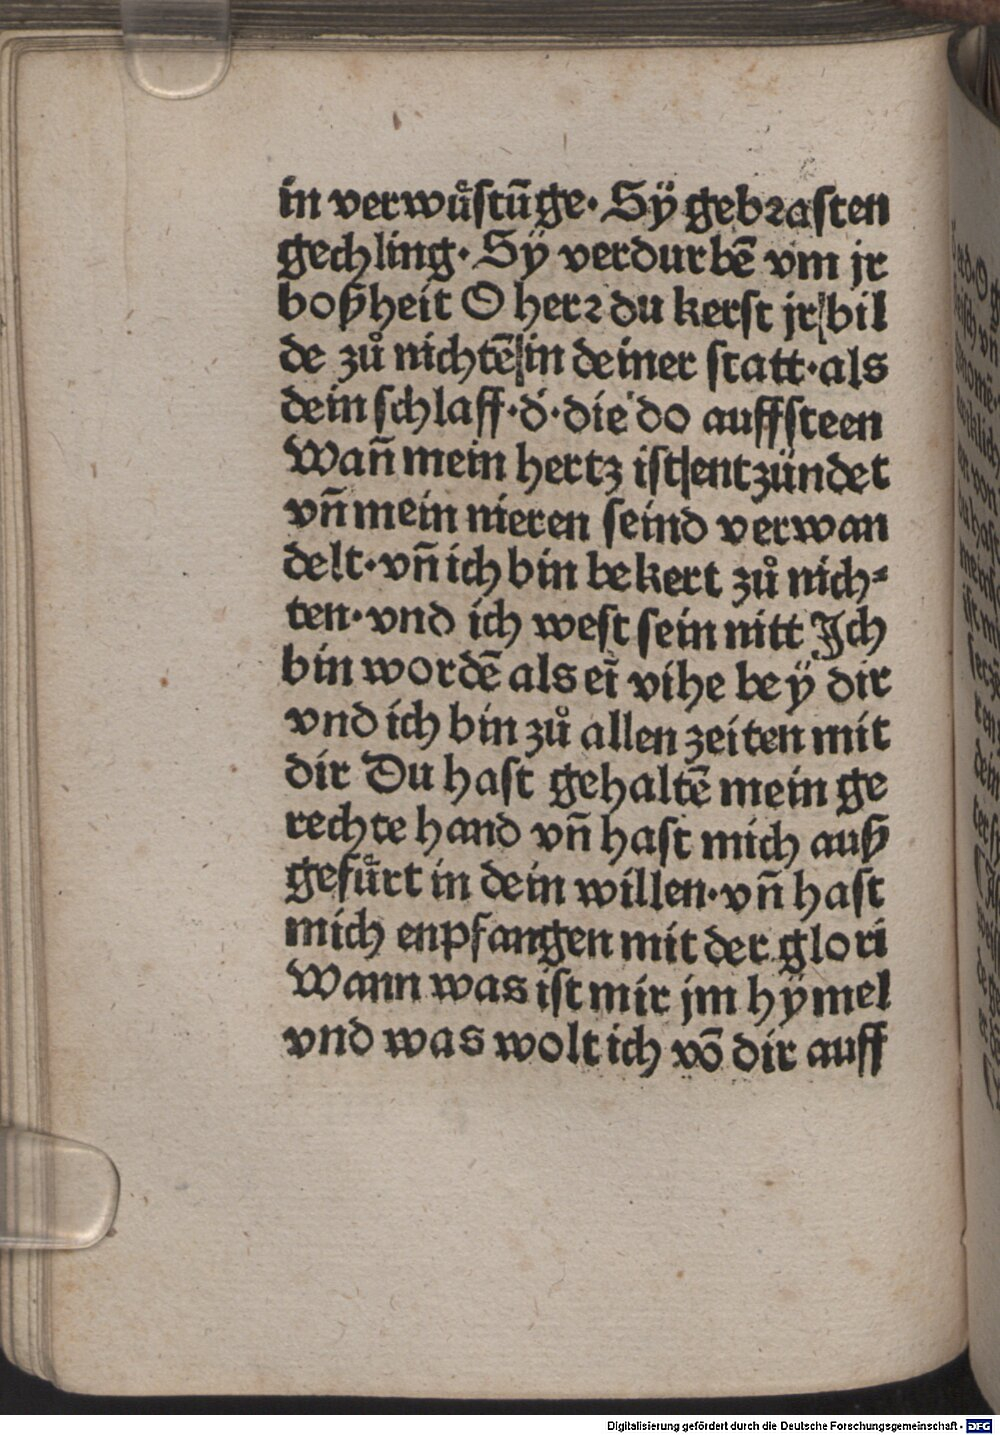 in verwuͤstūge. Sÿ gebꝛasten
gechling. Sÿ verdurbē vm jr
boßheit O herꝛ du kerst jr bil
de zuͦ nichtē in deiner statt. als
dein schlaff. d. die do auffsteen
Wañ mein hertz ist entzündet
vñ mein nieren seind verwan
delt. vñ ich bin bekert zuͦ nich⸗
ten. vnd ich west sein nitt Jch
bin wordē als eī vihe beÿ dir
vnd ich bin zuͦ allen zeiten mit
dir Du hast gehaltē mein ge
rechte hand vñ hast mich auß
gefuͤrt in dein willen. vñ hast
mich enpfangen mit der glori
Wann was ist mir jm hÿmel
vnd was wolt ich vō dir auff
Digitalisierung gefördert durch die Deutsche Forschungsgemeinschaft - DFG